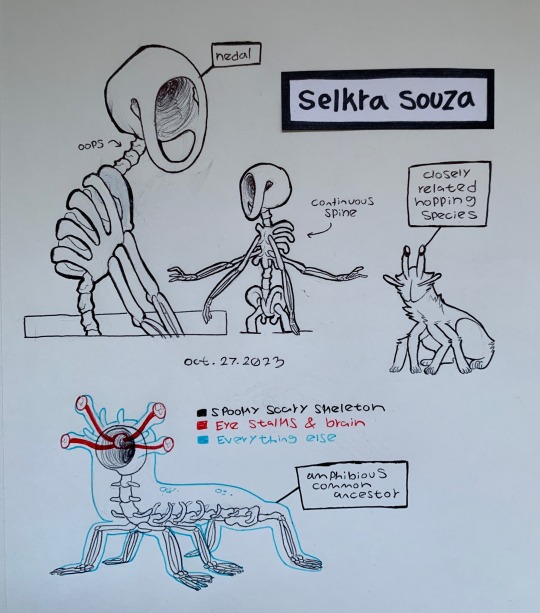 nedal
Selkra Souza
oops
continuous
spine
closely
related
hopping
species
oct.27.2023
Spooky scary skeleton
Eye stalks & brain
Everything else
amphibious
common
ancestor